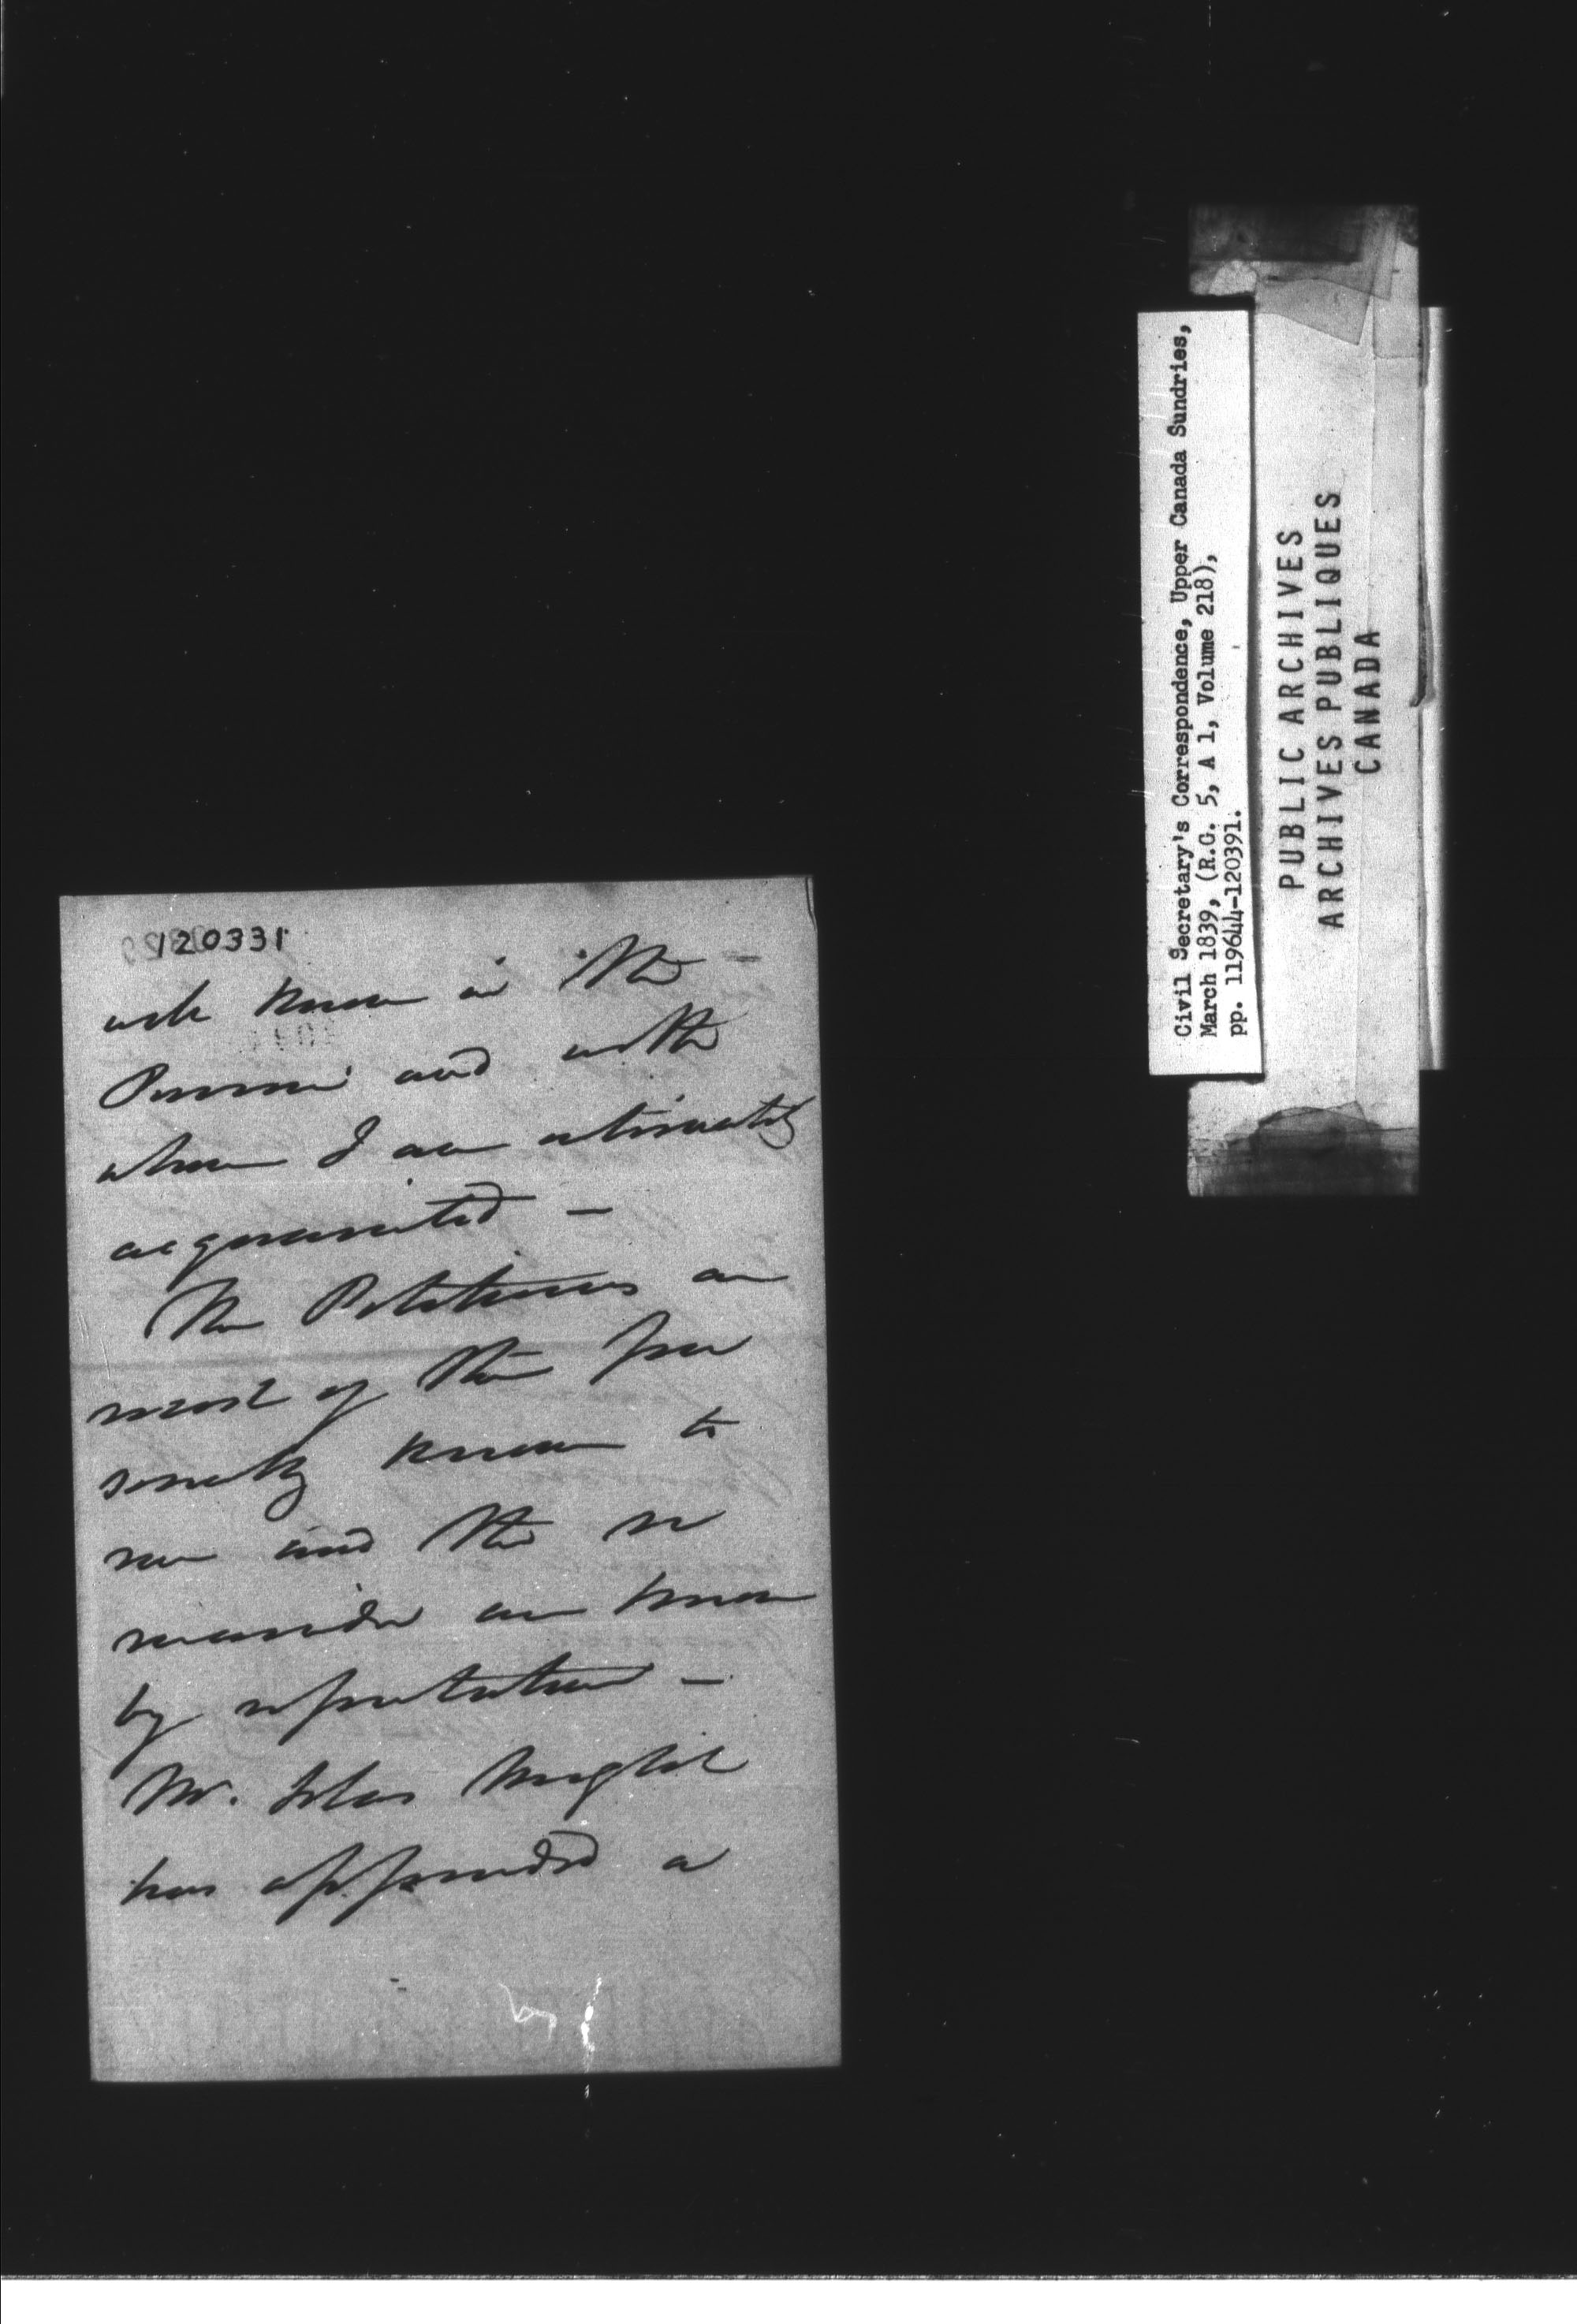 120331
well known in the
Province and with
whom I am intimately
acquainted —
The Petitioners are
most of them per
sonally known to
me and the re
mainder are known
by reputation —
Mr.
has appended a
Civil Secretary's Correspondence, Upper Canada Sundries,
March 1839, (R.G. 5, A 1, Volume 218),
pp. 119644-120391.
PUBLIC ARCHIVES
ARCHIVES PUBLIQUES
CANADA